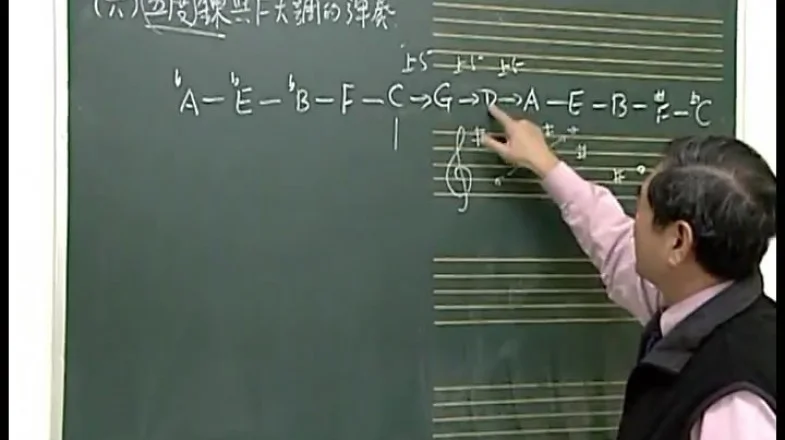 (六)五度鍊與F大調的彈奏
上5 上5 上5
♭A—♭E—♭B—F—C→G→D→A—E—B—♯F—♭C